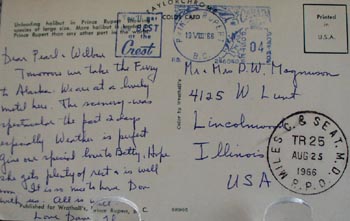 Unloading halibut in Prince Rupert
more halibut is landed
than any other port in the
TAYLORCHROME
COLOR CARD
BEST
Crest
PRINCE RUPERT
B.C.
04
Printed in
U.S.A.
Dear Pearl & Wilbur
Tomorrow we take the Ferry
to Alaska. We are at a lovely
motel here. The scenery was
spectacular the past 2 days
especially. Weather is perfect
Give our special love to Betty. Hope
she gets plenty of rest & is well
soon. It is so nice to have Don
with us. All is well
Love
Mr & Mrs D.W. Magnuson
4125 W. Lunt
Lincolnwood
Illinois
USA
MILES C. & SEAT. M.D.
TR 25
AUG 25
1966
R.P.O.
Published for Wrathall's, Prince Rupert, B.C.